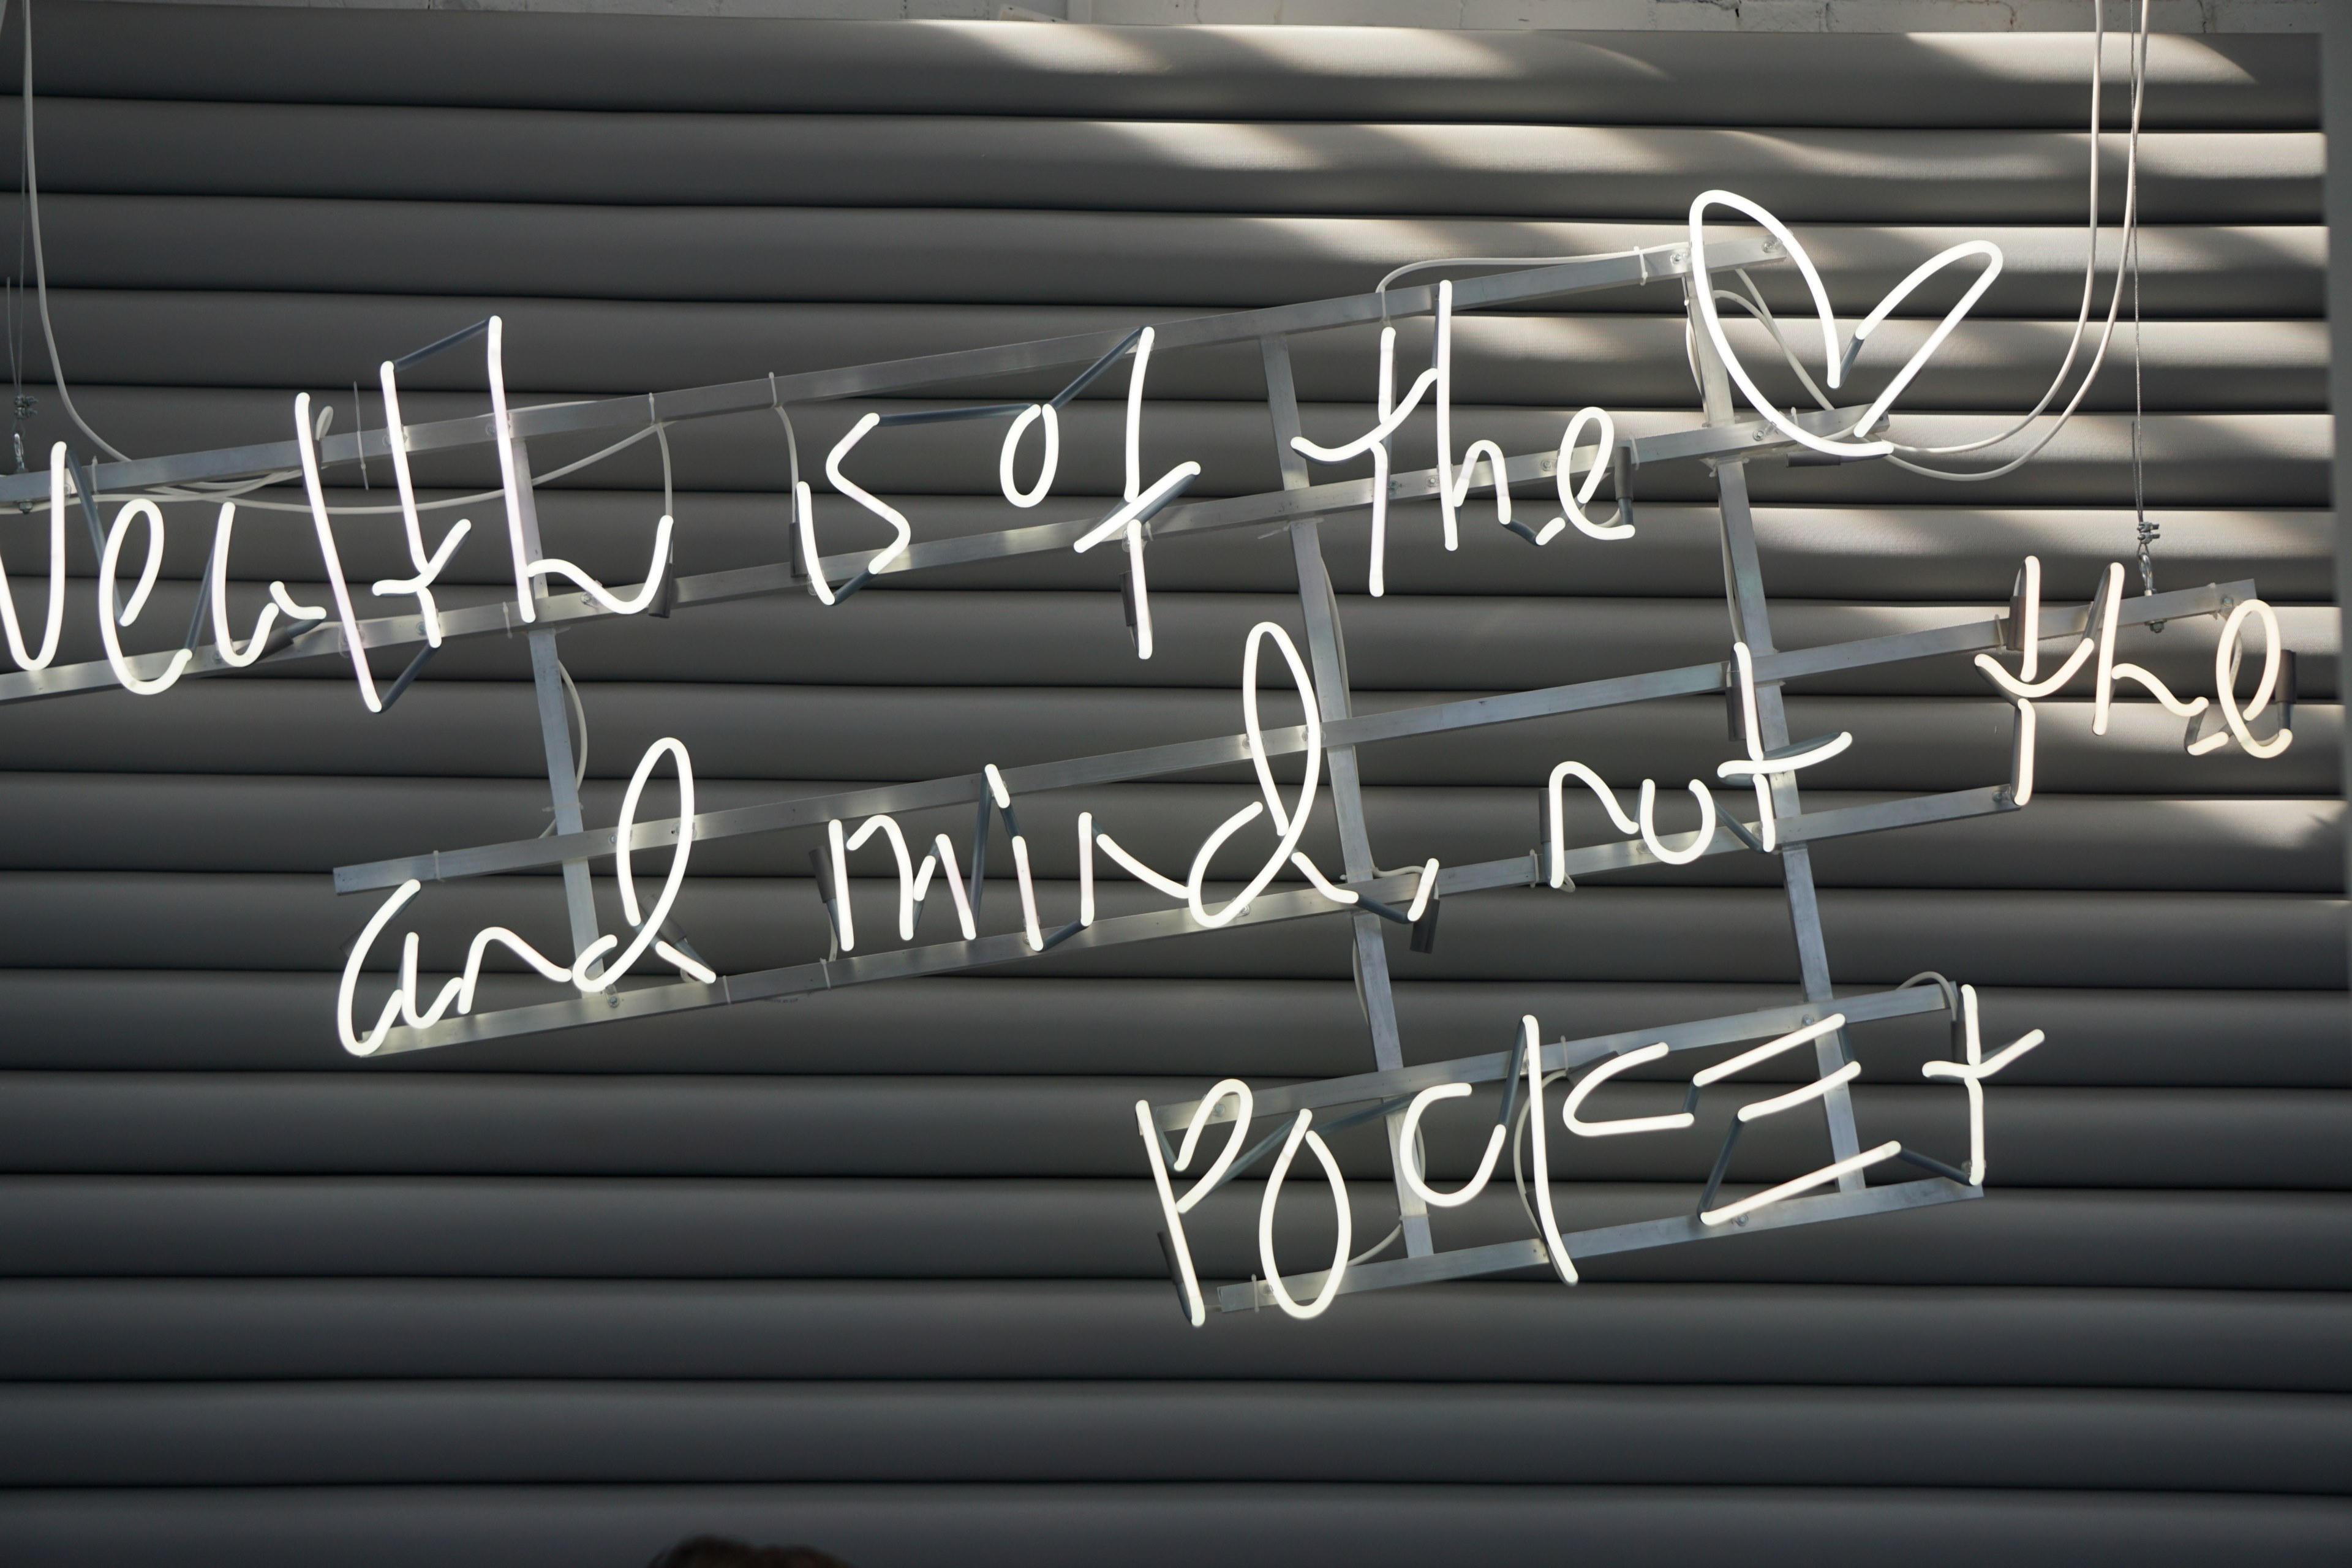 wealth is of the ♡
and mind, not the
POCKET